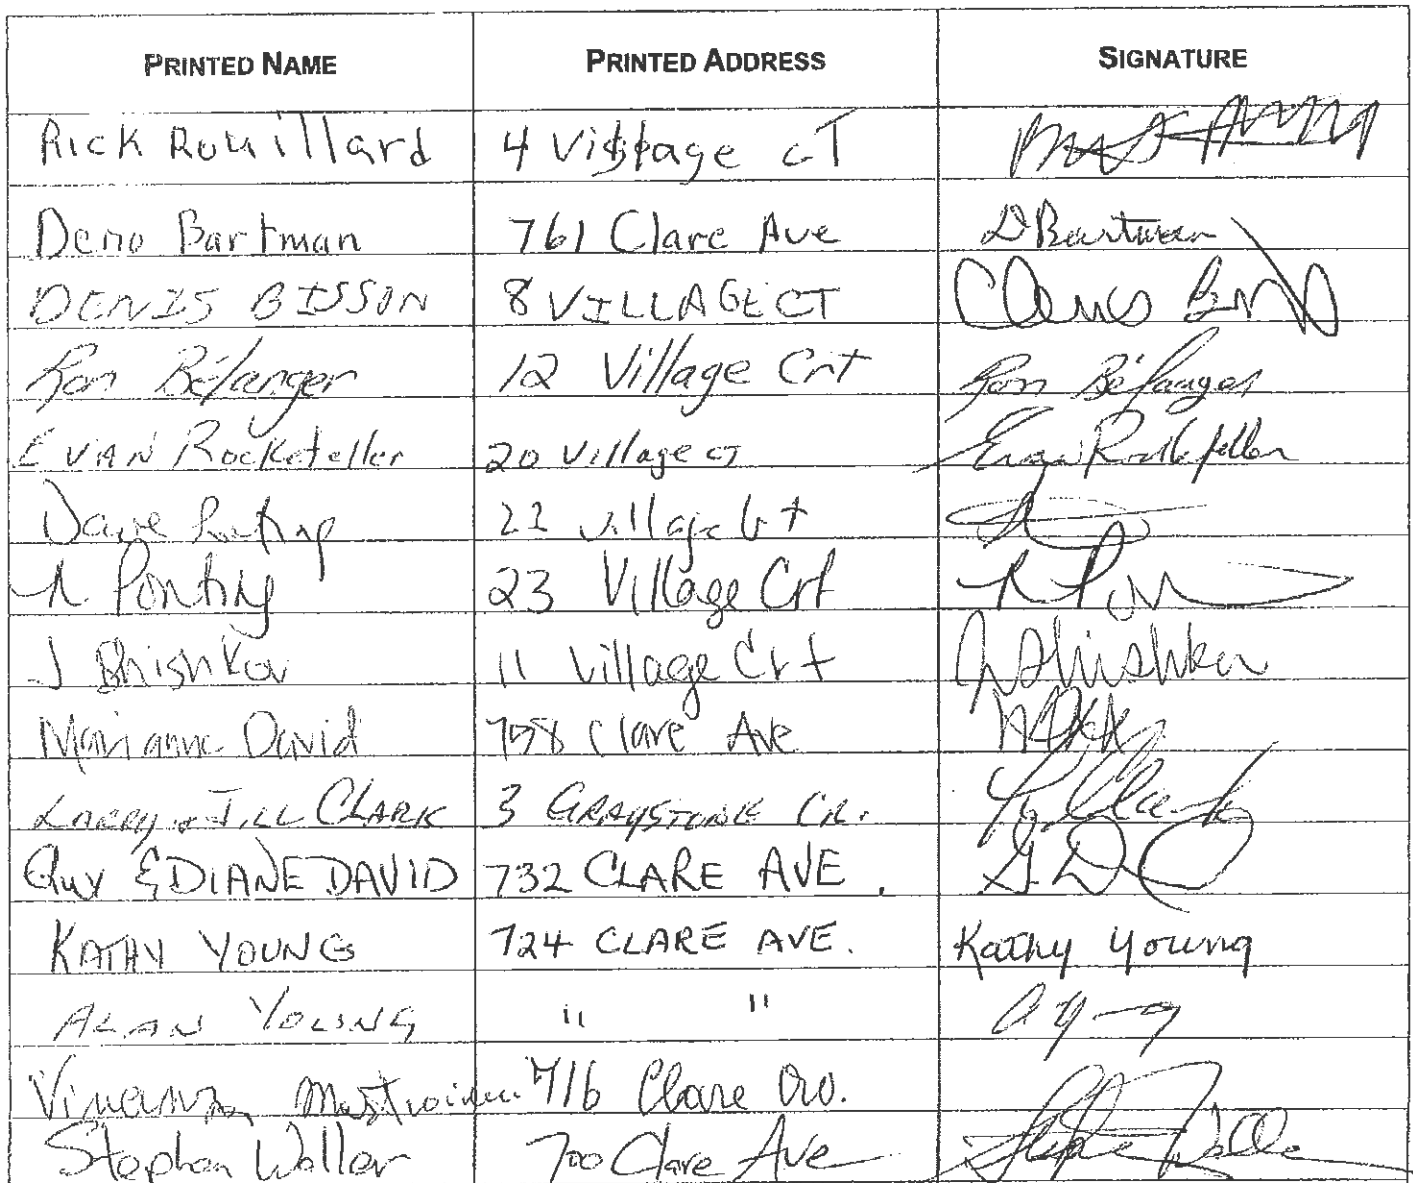 PRINTED NAME PRINTED ADDRESS SIGNATURE
Rick Rouillard 4 Village CT
Deno Bartman 761 Clare Ave D Bartman
DENIS BISSON 8 VILLAGE CT
Ron Bélanger 12 Village Crt Ron Bélanger
EVIAN Rockefeller 20 Village CT Evan Rockefeller
Dave 22 Village
N Ponting 23 Village Crt
J Shishkov 11 Village Crt
Marianne David Clare Ave
LARRY & JILL CLARK 3 GRAYSTONE CR.
Guy & DIANE DAVID 732 CLARE AVE. G D
KATHY YOUNG 724 CLARE AVE. Kathy Young
ALAN YOUNG " "
716 Clare
Stephen Waller 700 Clare Ave